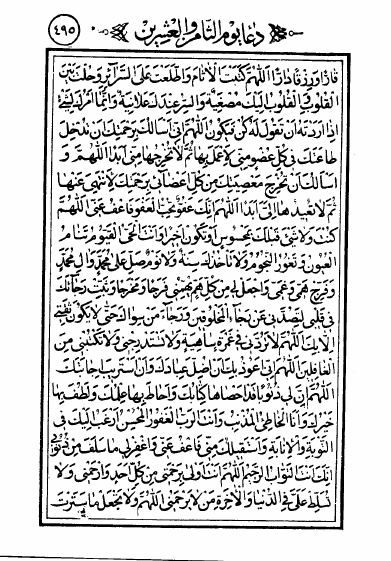 ٤٩٥
دعا يوم الثامن والعشرين
اللهم كتبت الآثام واطلعت على السرائر وحلت بين
القلوب فالقلوب إليك مصغية والسر عندك علانية وإنما أمرك لشيء
إذا أردته أن تقول له كن فيكون اللهم إني أسألك برحمتك أن تدخل
طاعتك في كل عضو مني لأعمل بها ثم لا تخرجها مني أبدا اللهم و
أسألك أن تخرج معصيتك من كل أعضائي برحمتك لأنتهي عنها
ثم لا تعيدها إلي أبدا اللهم إنك عفو تحب العفو فاعف عني اللهم
كنت ولا شيء قبلك بمحسوس أو تكون أخيرا وأنت الحي القيوم تنام
العيون وتغور النجوم ولا تأخذك سنة ولا نوم صل على محمد وآل محمد
وفرج همي وغمي واجعل لي من كل هم يهمني فرجا ومخرجا وثبت رجائك
في قلبي لتصدني عن رجاء المخلوقين ورجاء من سواك حتى لا يكون ثقتي
إلا بك اللهم لا تردني في غمرة ساهية ولا تستدرجني ولا تكتبني من
الغافلين اللهم إني أعوذ بك أن أضل عبادك وأن أستريب إجابتك
اللهم إن لي ذنوبا قد أحصاها كتابك وأحاط بها علمك ولطف بها
خبرك وأنا الخاطئ المذنب وأنت الرب الغفور المحسن أرغب إليك في
التوبة والإنابة وأستقيلك مني فاعف عني واغفر لي ما سلف من ذنوبي
إنك أنت التواب الرحيم اللهم أنت أولى برحمتي من كل أحد فارحمني ولا
تسلط علي في الدنيا والآخرة من لا يرحمني اللهم ولا تجعل ما سترت